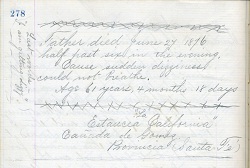 278
Father died June 27 1896
half past six in the evening.
Cause sudden dizziness
could not breathe.
Age 61 years, 4 months 18 days
"La
Estancia California"
Cañada de Gomez
Provincia Santa Fe